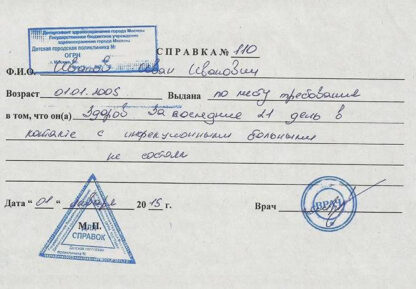 Департамент здравоохранения города Москвы
Государственное бюджетное учреждение
здравоохранения города Москвы
Детская городская поликлиника №
ОГРН
СПРАВКА № 110
Ф.И.О. Иванов Иван Иванович
Возраст 01.01.2005 Выдана по месту требования
в том, что он(а) Здоров За последние 21 день в
контакте с инфекционными больными
не состоял
Дата "01" января 2015 г. Врач
ВРАЧ
М.П.
ДЛЯ
СПРАВОК